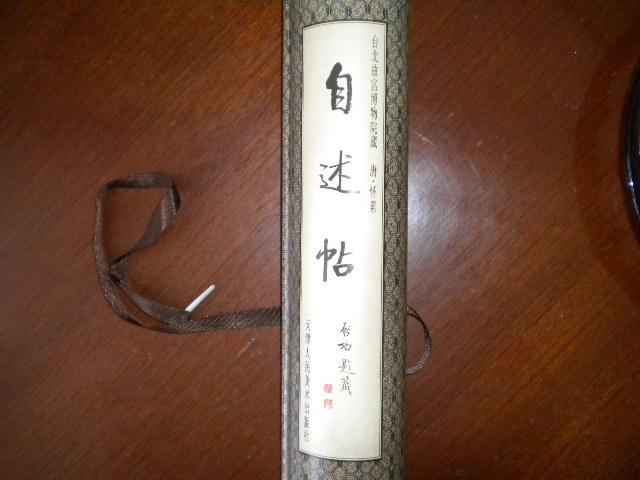 台北故宫博物院藏 唐·怀素
自述帖
启功题签
天津人民美术出版社